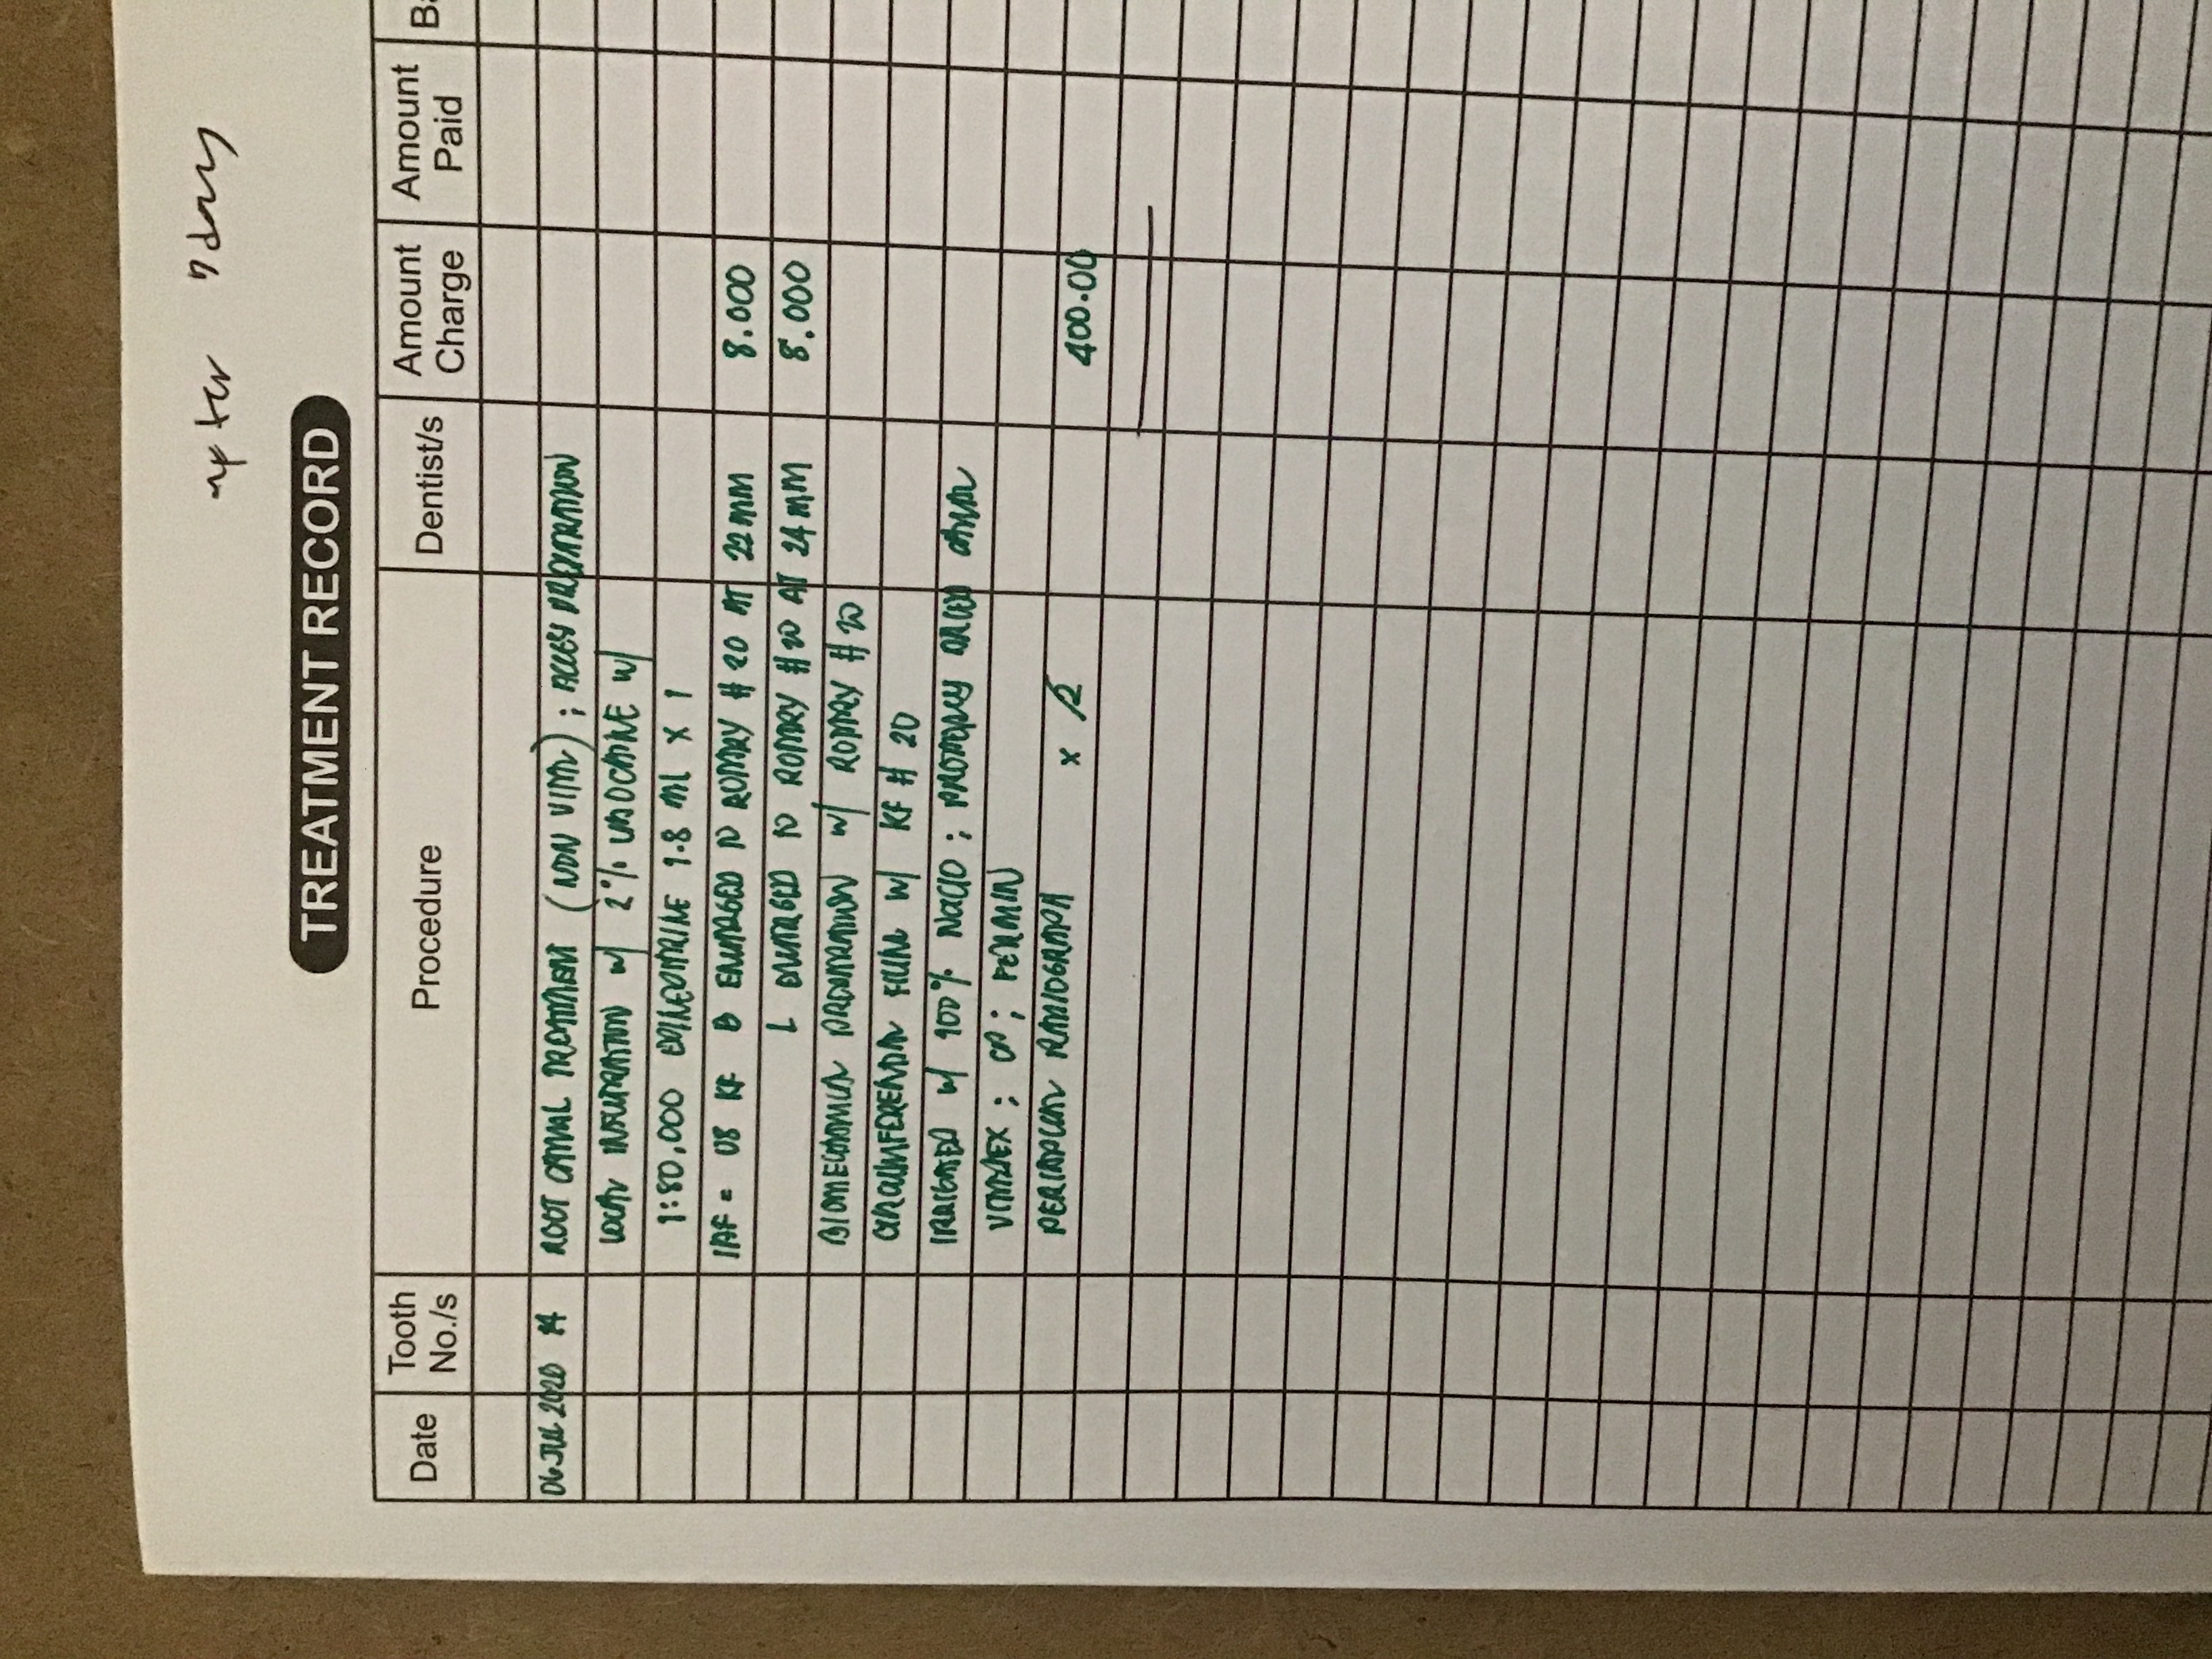 after 7 days
TREATMENT RECORD
Date Tooth No./s Procedure Dentist/s Amount Charge Amount Paid Ba
06 JUL 2020 14 ROOT CANAL TREATMENT (NON VITAL); ACCESS PREPARATION
LOCAL INFILTRATION w/ 2% LIDOCAINE w/
1:80,000 EPINEPHRINE 1.8 ml x 1
IAF = 08 KF B ENLARGED TO ROTARY # 20 AT 22 MM 8.000
L ENLARGED TO ROTARY # 20 AT 24 MM 8.000
BIOMECHANICAL PREPARATION w/ ROTARY # 20
CIRCUMFERENTIAL FILING w/ KF # 20
IRRIGATED w/ 100% NaClO;
; CP;
PERIAPICAL RADIOGRAPH x 2 400.00